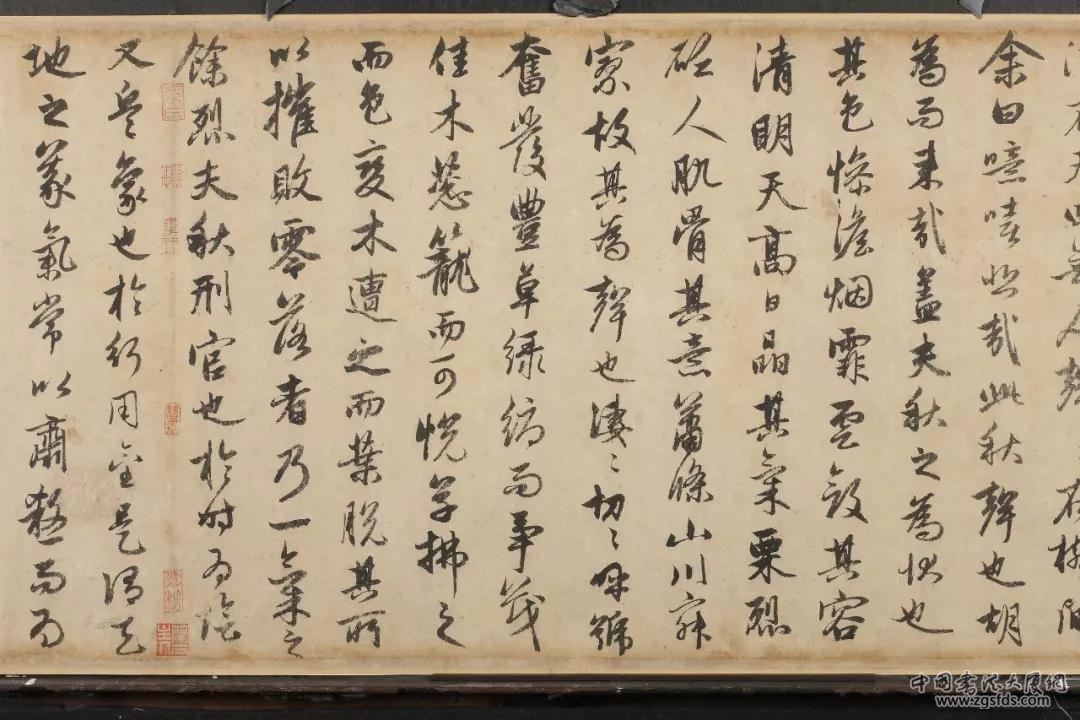 天無人聲在樹間
余曰噫嘻悲哉此秋聲也胡
為而来哉盖夫秋之為狀也
其色慘澹烟霏雲斂其容
清明天高日晶其氣栗烈
砭人肌骨其意蕭條山川寂
寥故其為聲也淒〻切〻呼號
奮發豐草綠縟而爭茂
佳木葱籠而可悅草拂之
而色變木遭之而葉脫其所
以摧敗零落者乃一氣之
餘烈夫秋刑官也於時為陰
又兵象也於行用金是謂天
地之義氣常以肅殺而為
中国书法大厦網
www.zgsfds.com